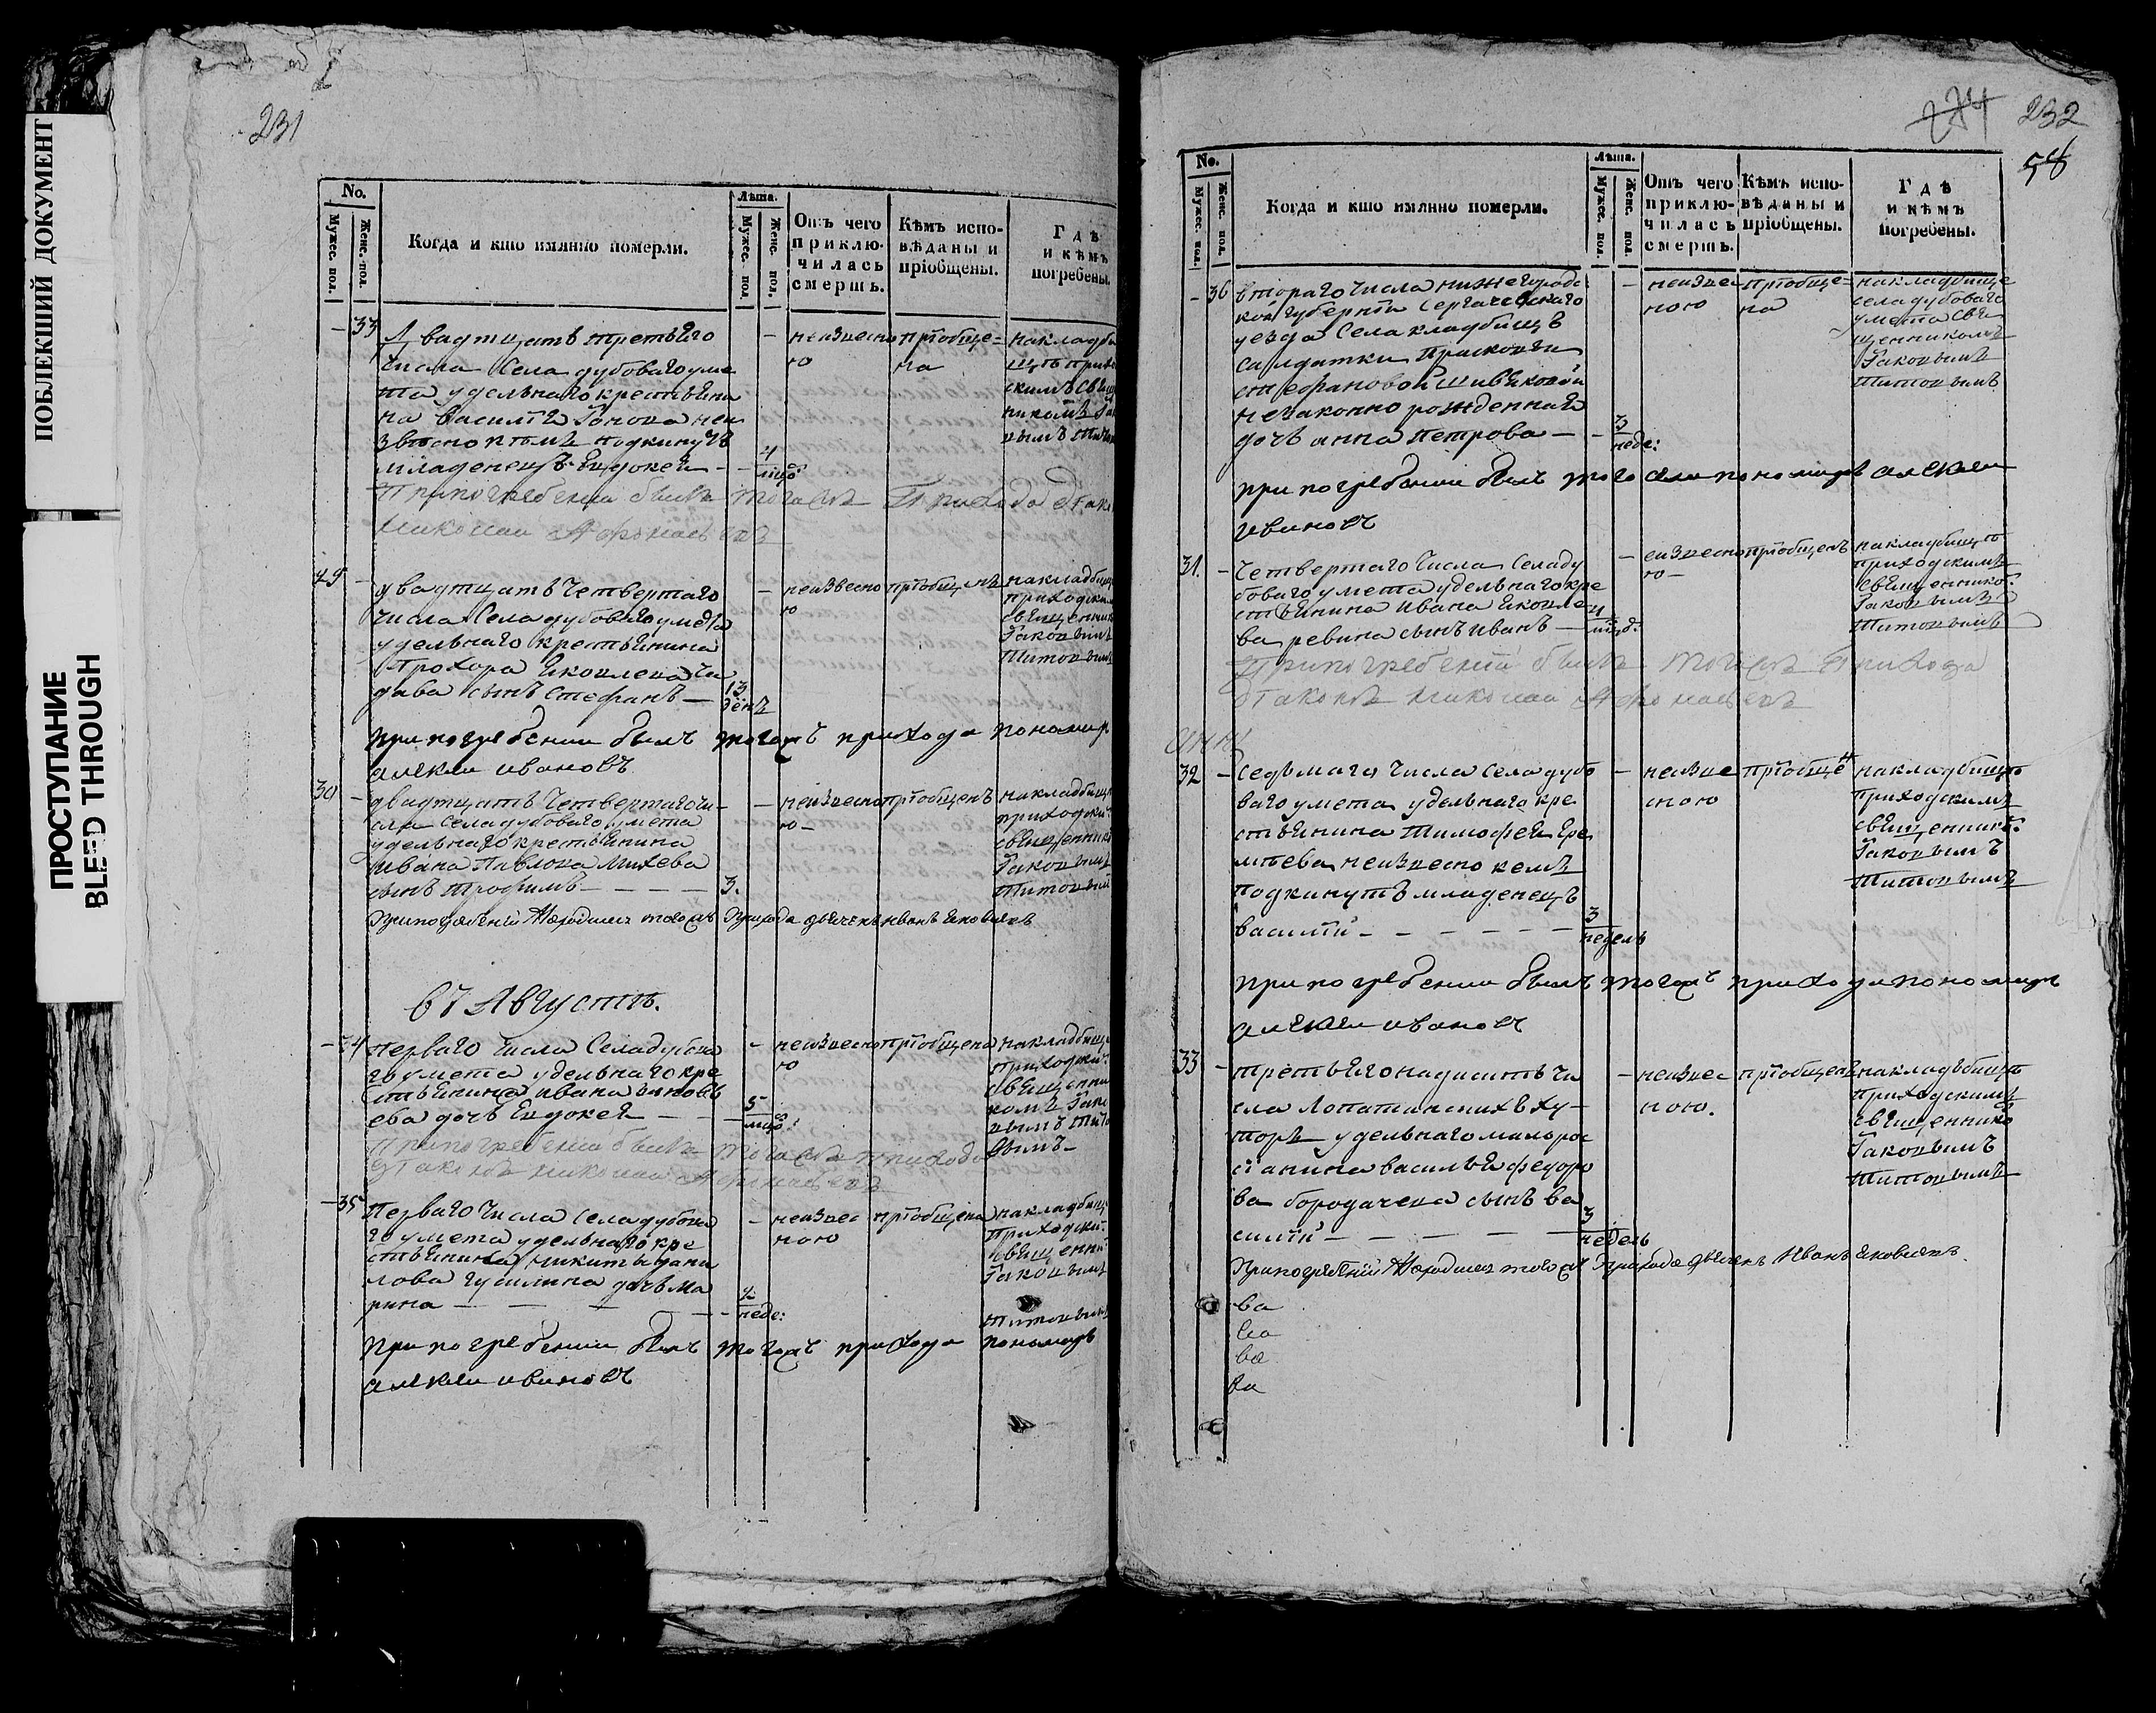 ПОБЛЕКШИЙ ДОКУМЕНТ
ПРОСТУПАНИЕ
BLEED THROUGH
231
No.
Мужес. пол.
Женс. пол.
Когда и кто имянно померли.
Лѣта.
Мужес. пол.
Женс. пол.
Отъ чего приклю-чилась смерть.
Кѣмъ испо-вѣданы и пріобщены.
Гдѣ и кѣмъ погребены.
33
двадтцать третьяго
числа Села дубоваго уме
та удельнаго крестьяни
на Василія
звесно кемъ подкинутъ
младенецъ Евдокея -
4
мцо
неизвесно
ю
пріобще=
на
При погребеніи былъ того же Прихода
Николаи Афонасьевъ
29
двадтцать четвертаго
числа Села дубоваго умета
удельнаго крестьянина
Прохора Яковлева
сынъ Стефанъ —
13
денъ
неизвесно
ю
пріобщенъ
Іаковымъ
Титовымъ
при погребении былъ тогожъ прихода пономарь
алекеи ивановъ
30
двадтцать четвертаго чи-
сла села дубоваго умета
удельнаго крестьянина
Ивана Павлова Михева
сынъ трофимъ — — — —
3.
неизвесно
ю-
пріобщенъ
Іаковымъ
При погребеніи находился тогожъ Прихода дьячекъ иванъ яковлевъ
въ Августѣ.
34
Перваго числа Села дубова
го умета удельнаго кре
стьянина ивана
ева дочь Евдокея — —
5
неизвесно
ю
пріобщена
При погребении былъ того же прихода
Діаконъ николаи Афонасьевъ
35
Перваго числа села дубова
го умета удельнаго кре
стьянина никиты дани
лова гусилина дочь ма
рина — — — —
неде:
неизвес
ною
пріобщена
Іаковымъ
при погребении былъ тогожъ прихода пономарь
алекеи ивановъ
232
58
No.
Мужес. пол.
Женс. пол.
Когда и кто имянно померли.
Лѣта.
Мужес. пол.
Женс. пол.
Отъ чего приклю-чилась смерть.
Кѣмъ испо-вѣданы и пріобщены.
Гдѣ и кѣмъ погребены.
36
втораго числа нижегородс
кой губерніи Сергачевскаго
уезда Села кладбищъ
салдатки Прасковьи
стефановой
незаконно рожденная
дочь анна Петрова —
3
неде:
неизвес
ною
пріобще=
на
на кладбище
села дубоваго
умета свя
щенникомъ
Іаковымъ
Титовымъ
при погребении былъ того пономарь алекеи
ивановъ
31.
четвертаго числа Села ду
боваго умета удельнаго кре
стьянина ивана яковле
ва ревина сынъ иванъ —
неизвесно
ю-
пріобщенъ
на кладбищѣ
приходскимъ
священнико:
Іаковымъ
Титовымъ
При погребеніи былъ того же Прихода
Діаконъ николаи Афонасьевъ
32
седьмаго числа села дубо
ваго умета удельнаго кре
стьянина Тимофея Ере
мѣева неизвесно кемъ
подкинутъ младенецъ
василій — — — — —
3
недель
неизве
сною
пріобще
на кладбищѣ
приходскимъ
священнико:
Іаковымъ
Титовымъ
при погребении былъ тогожъ прихода пономарь
алекеи ивановъ
33
третьягонадцать чи
сла Лопатинскихъ ху—
торѣ удельнаго малорос
сіанина василья федоро
ва бородачева сынъ ва
силій — — — — —
3
недель
неизвес
ною.
пріобщенъ
на кладбищѣ
приходскимъ
священнико
Іаковымъ
Титовымъ
При погребеніи находился тогожъ Прихода дьячекъ Иванъ яковлевъ
ва
ва
ва
ва